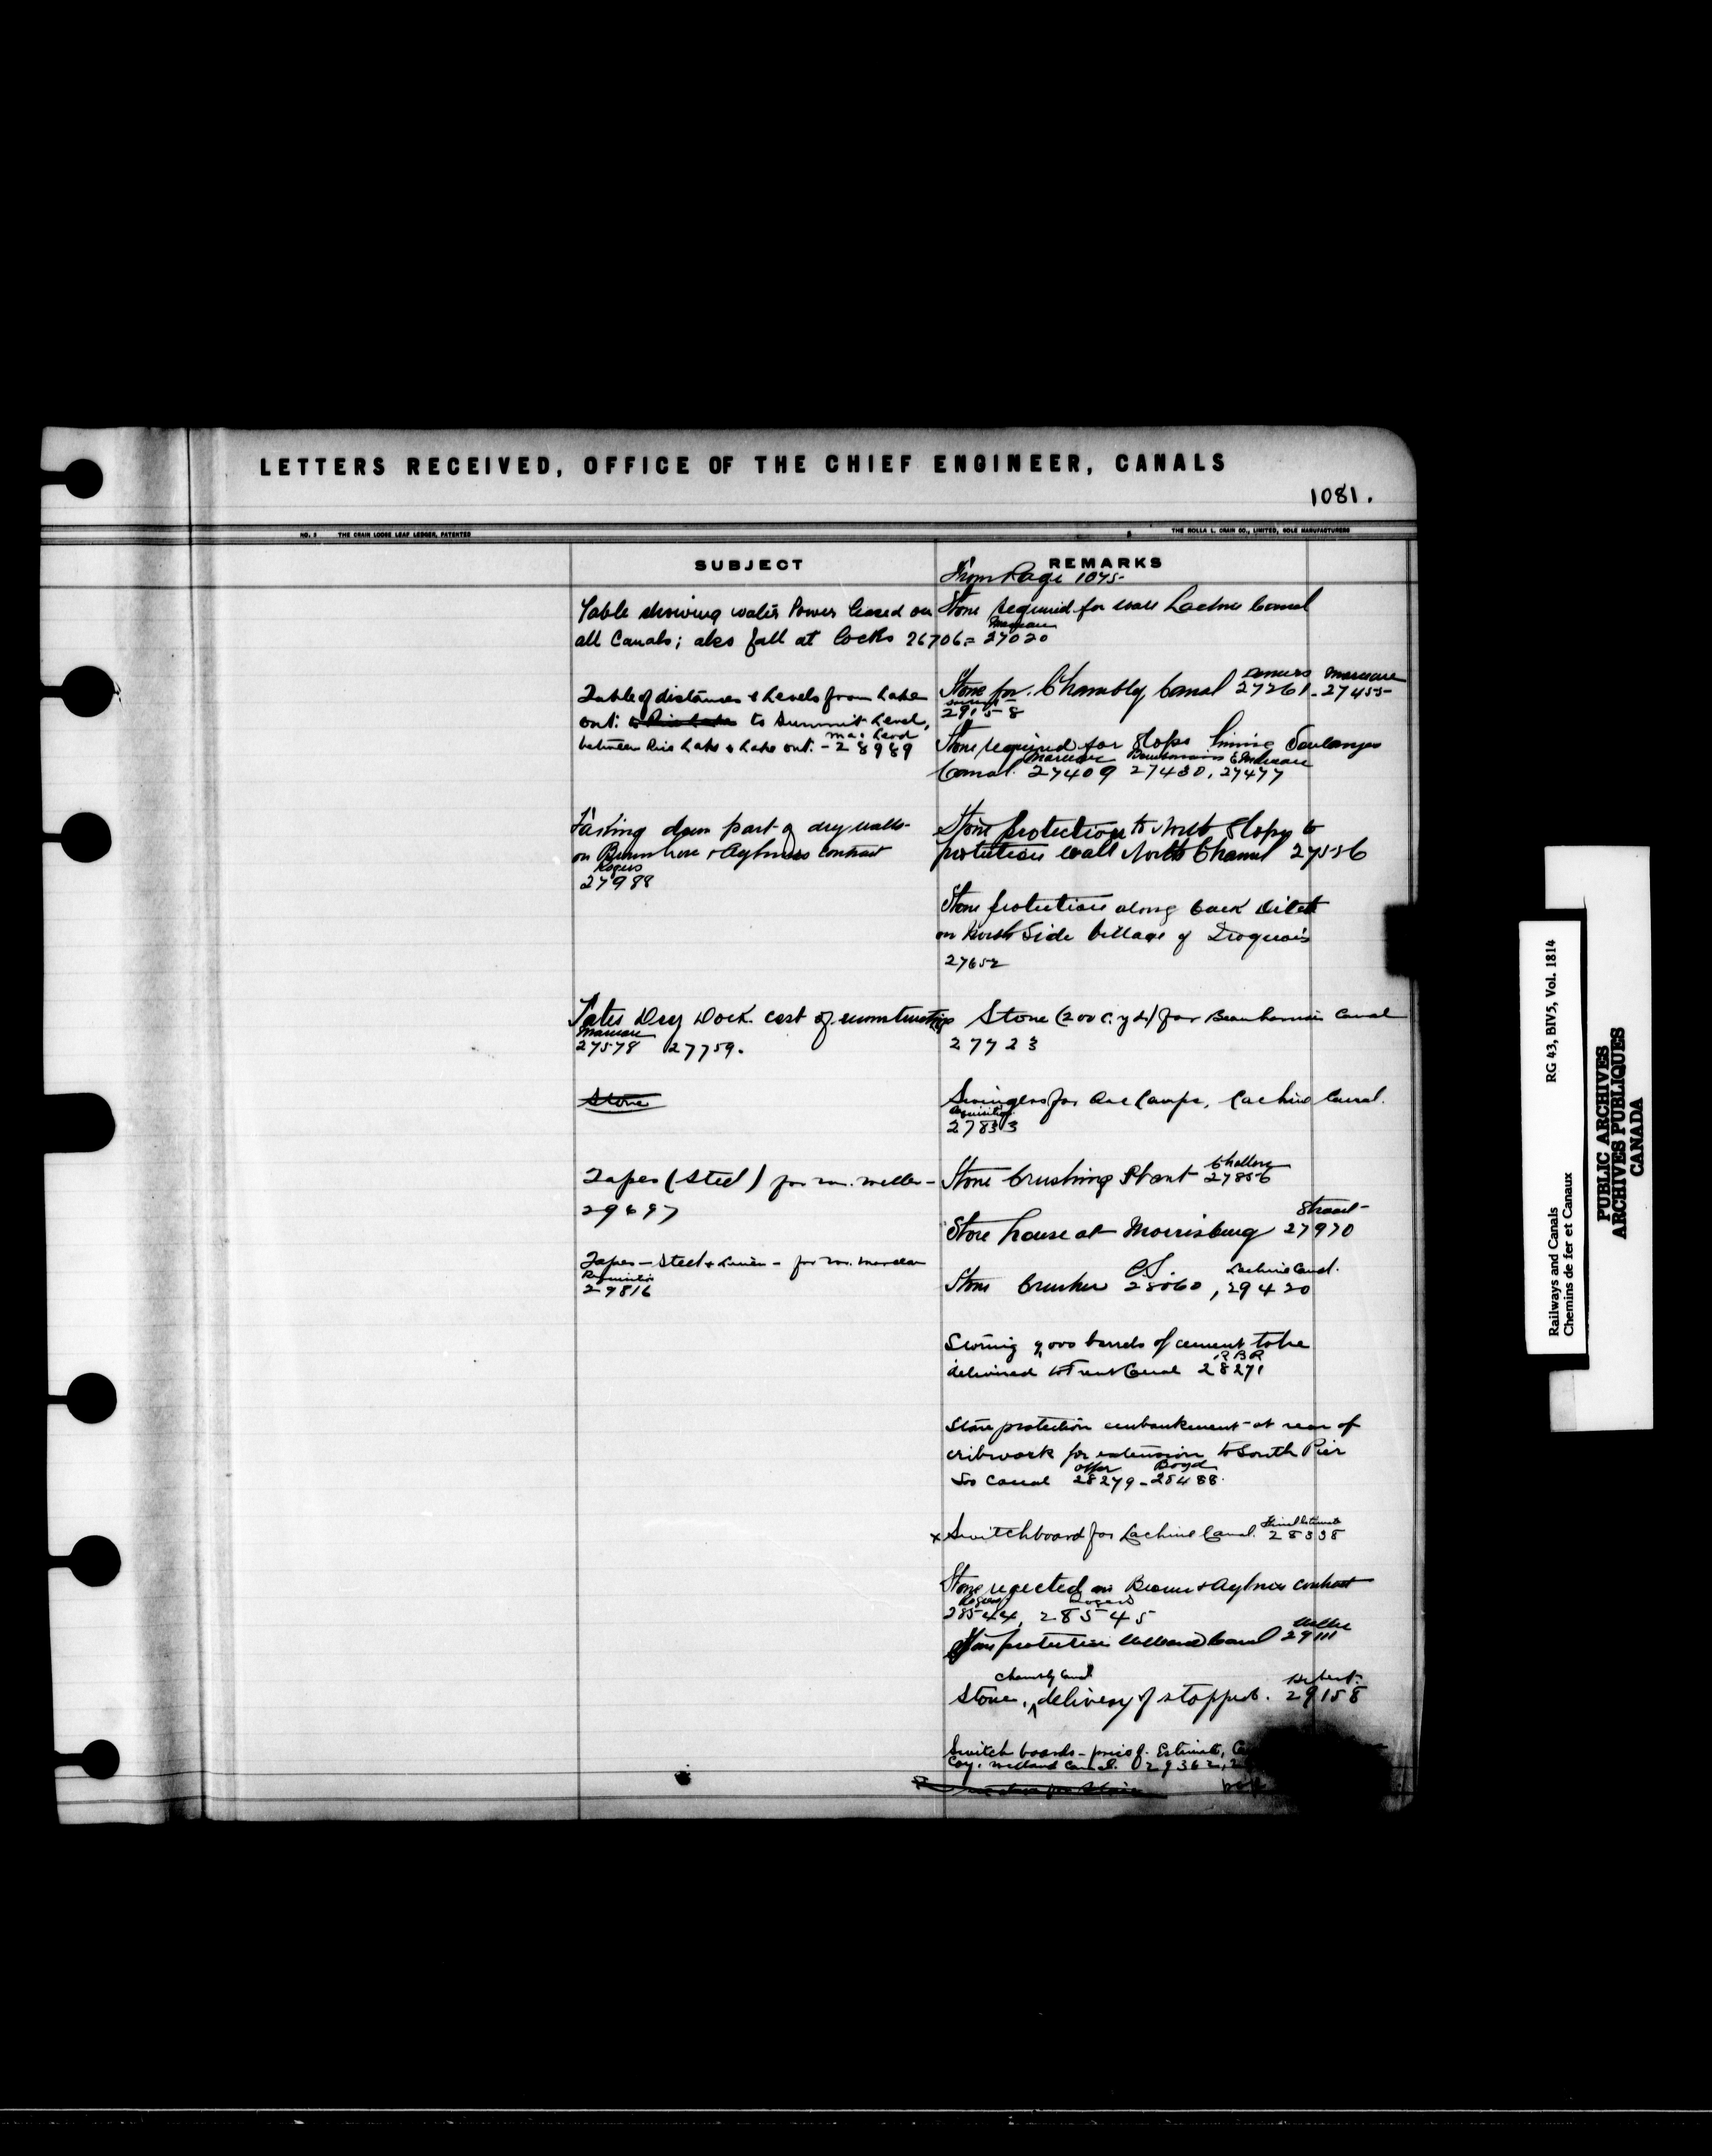 LETTERS RECEIVED, OFFICE OF THE CHIEF ENGINEER, CANALS
1081.
NO. 5 THE CRAIN LOOSE LEAF LEDGER, PATENTED
THE ROLLA L. CRAIN CO., LIMITED, SOLE MANUFACTURERS
SUBJECT
Table showing water Power leased on
all Canals; also fall at locks 26706 =
Table of distances & Levels from Lake
Ont: to Rice Lake to Summit Level,
between Rice Lake & Lake Ont. - 28989
Taking down part of dry walls
on Brown & Aylmers contract
Rogers
27988
Tates Dry Dock. cost of reconstruction
Marceau
27578 27759.
Stone
Tapes (Steel) for Mr. Weller -
29697
Tapes - Steel & Linen - for Mr.
Requisition
27816
REMARKS
From Page 1075
Stone required for wall Lachine Canal
Marceau
27020
Stone for Chambly Canal 27261 - 27455
Marceau
29158
Stone required for slope lining Soulanges
Marceau
Canal. 27409 27430, 27477
Stone protection to North Slope to
protection wall North Channel 27536
Stone protection along back ditch
on North Side Village of Iroquois
27652
Stone (200 c. yds) for Beauharnois Canal
27723
Swingers for Arc Lamps, Lachine Canal.
Requisition
27833
Stone Crushing Plant 27856
Store house at Morrisburg 27970
Lachine Canal.
Stone Crusher 28060, 29420
Storing 9,000 barrels of cement to be
RBR
delivered to Trent Canal 28271
Stone protection embankment at rear of
cribwork for extension to South Pier
Offer Boyd
Soo Canal 28279 - 28488.
Final Estimate
x Switchboard for Lachine Canal. 28338
Stone rejected on Brown & Aylmer contract
Rogers Rogers
28544, 28545
Weller
Stone protection Welland Canal 29111
Chambly Canal
Stone, delivery of stopped. 29158
Switch boards - price of. Estimate,
Coy. Welland Canal. 29362,
RG 43, BIV5, Vol. 1814
Railways and Canals
Chemins de fer et Canaux
PUBLIC ARCHIVES
ARCHIVES PUBLIQUES
CANADA